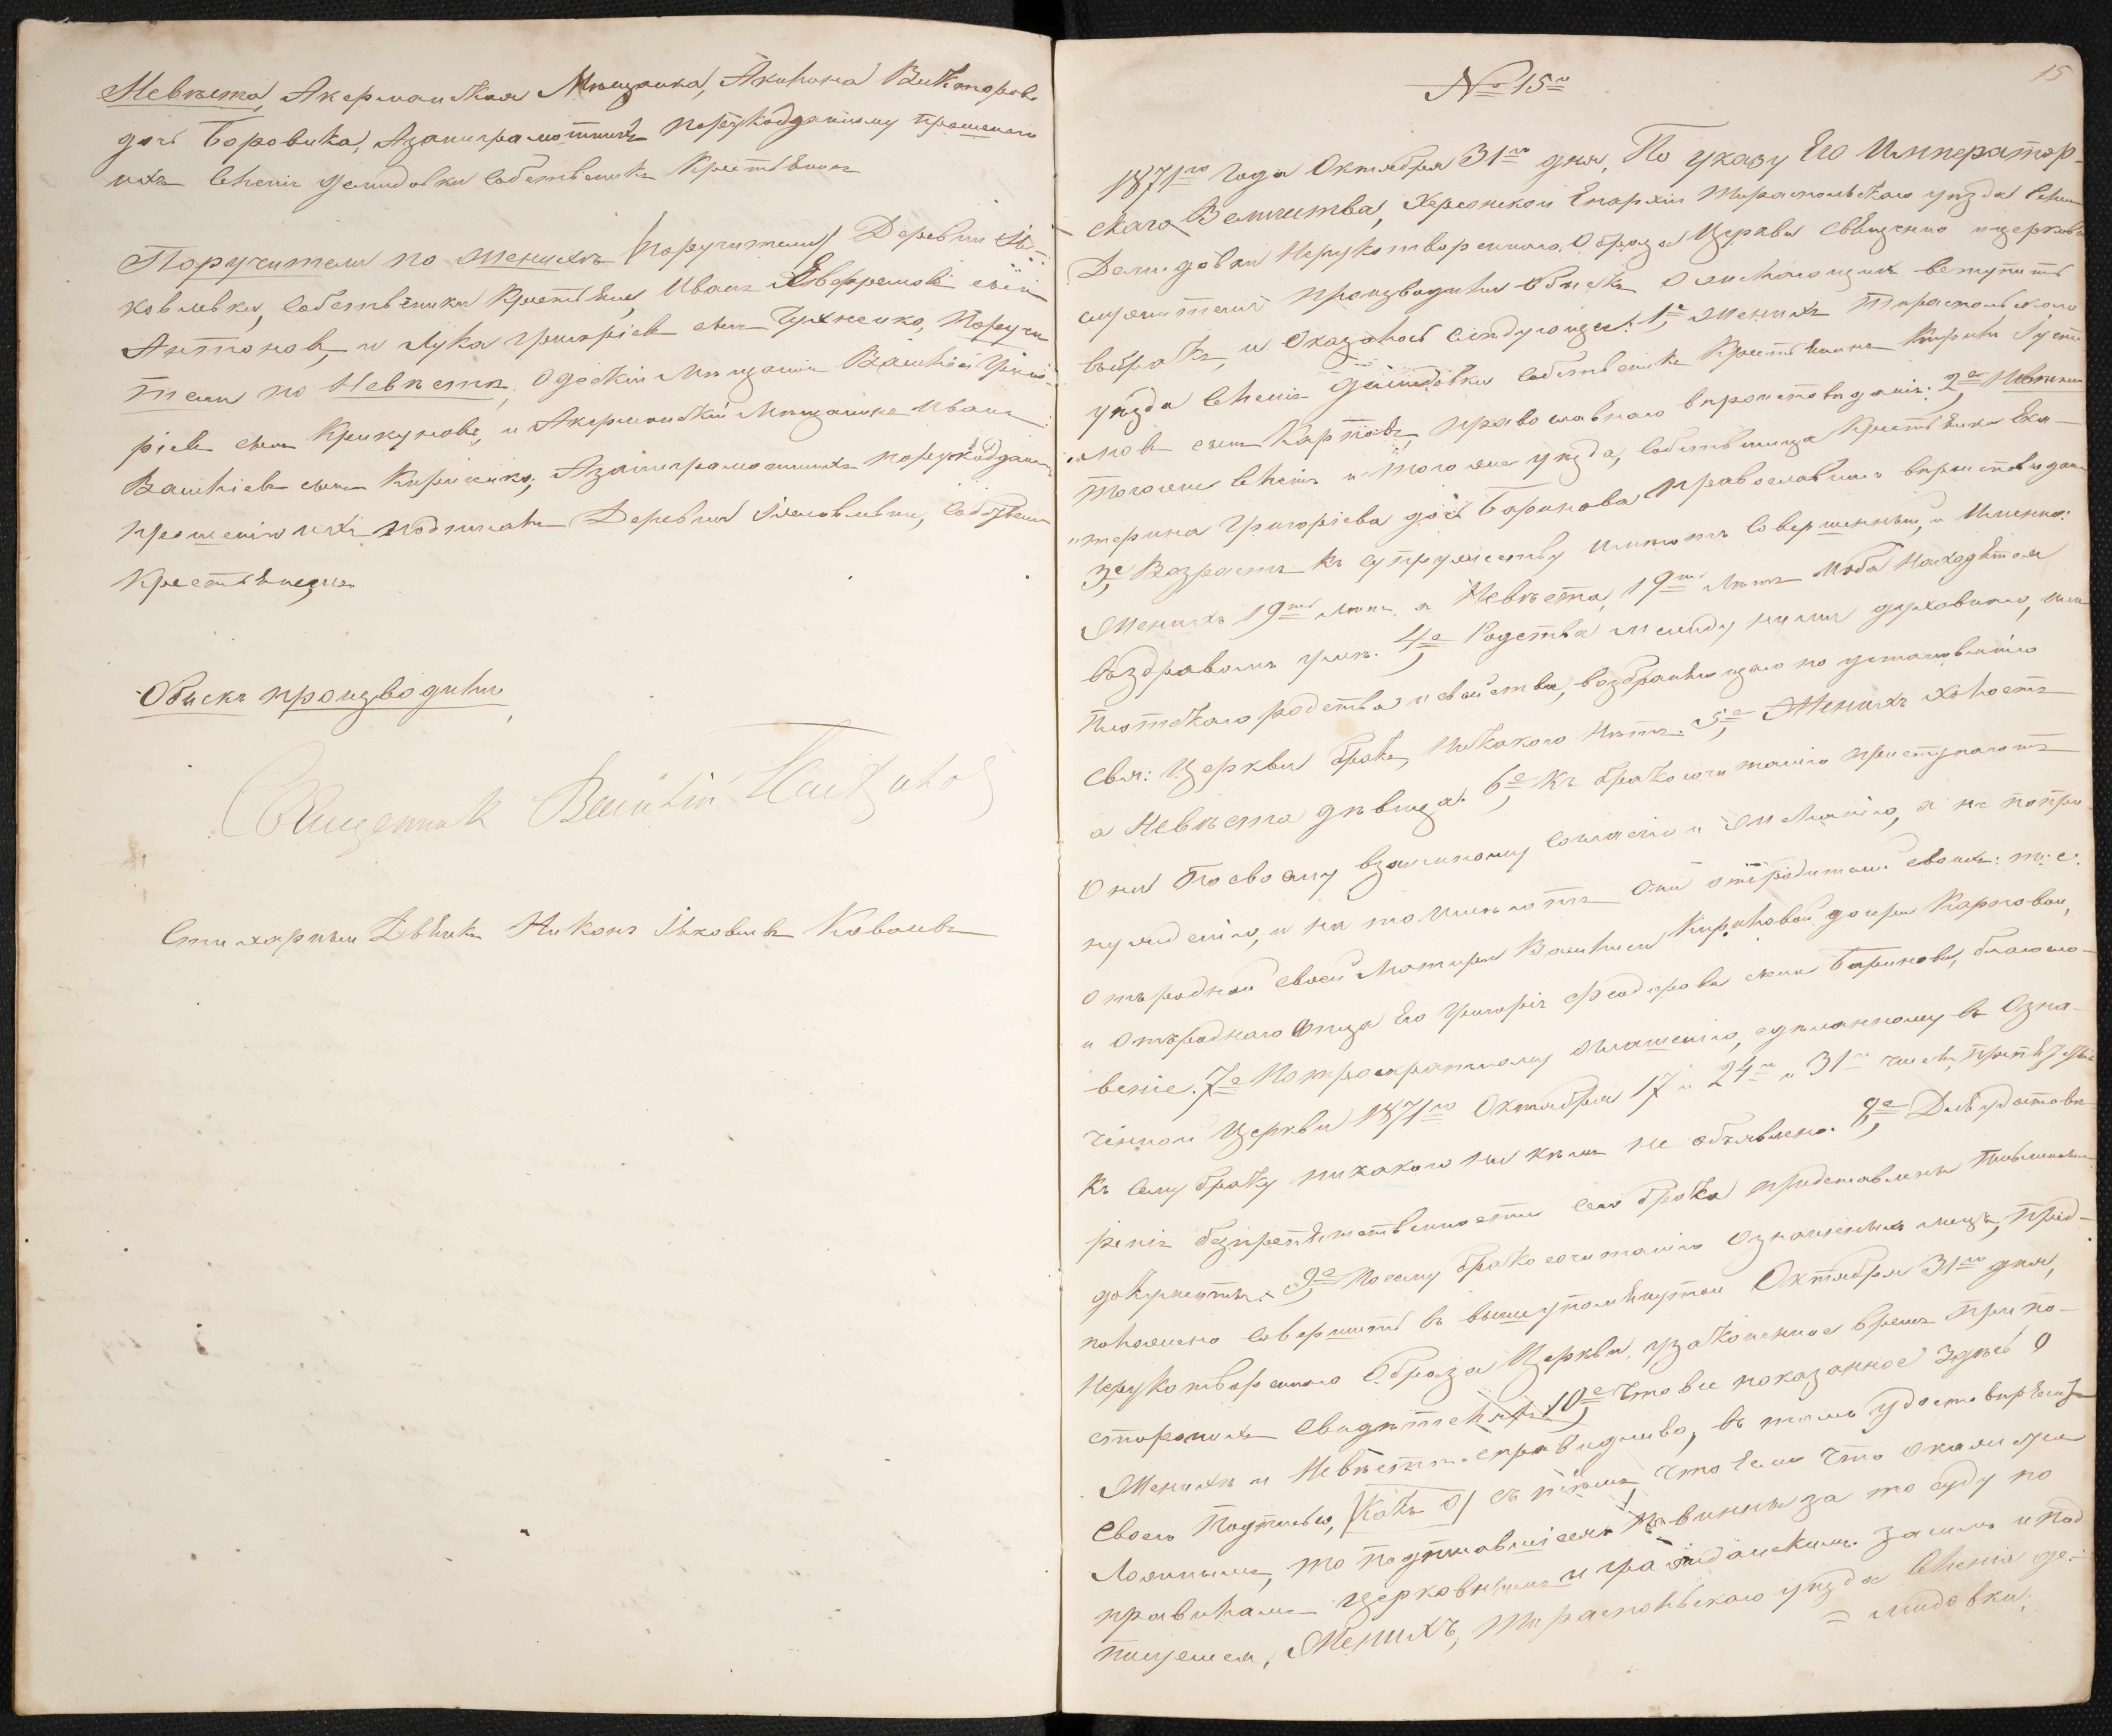 Невѣста, Акерманская Мѣщанка, Акилина Викторова
дочь Боровика, Азанеграмотныхъ порукоданному прошенію
ихъ Селенія Демидовки Собственникъ Крестьянинъ
Поручители по женихѣ /поручители/ Деревни Яковлевки,
собственники Крестьяне, Иванъ Евфремовъ сынъ
Антоновъ, и Лука Григоріевъ сынъ Чухненко, Поручители
по Невѣстѣ, Одескій Мѣщанинъ Василій Григоріевъ
сынъ Крикуновъ, и Акерманскій Мѣщанинъ Иванъ
Васильевъ сынъ Азанеграмотныхъ порукоданному
прошенію ихъ подписалъ Деревни Яковлевки, Собственникъ
Крестьянинъ
Обыскъ производили
Священникъ Василій
Стихарный Дьячекъ Никонъ Яковлевъ Ковалевъ
15
№ 15й
1871го Года Октября 31го дня, По указу Его Император-
скаго Величества, Херсонской Епархіи Тираспольскаго уѣзда Селенія
Демидовки Нерукотвореннаго Образа Церкви священно и церковно
служители производили обыскъ о желающихъ вступить
въ бракъ, и оказалось слѣдующее: 1е женихъ Тираспольскаго
уѣзда Селенія Демидовки собственникъ Крестьянинъ
сынъ Карповъ, православнаго вѣроисповѣданія: 2е Невѣста
тогоже Селенія и того же уѣзда, собственница Крестьянка Ека-
терина Григорьева дочь Баринова православнаго вѣроисповѣданія
3е Возрастъ къ супружеству имѣютъ совершенный, и Именно:
Женихъ 19ть лѣтъ, а Невѣста, 19ть лѣтъ и оба находятся
въ здравомъ умѣ. 4е Родства между ними духовнаго, или
плотскаго родства и свойства, возбраняющаго по установленію
Свят: Церкви бракъ, никакого нѣтъ. 5е Женихъ холостъ
а Невѣста дѣвица. 6е Къ бракосочетанію приступаютъ
Они по своему взаимному согласію и желанію, а не попри-
нужденію, и на то имѣютъ они отъ родителей своихъ: т: е:
отъ родной своей Матери Василисы Кириловой дочери Карповой,
и отъ роднаго отца Его Григорія Феодорова сына Баринова, благосло-
веніе. 7е По троекратному оглашенію, сдѣланному въ озна-
ченной Церкви 1871го Октября 17 и 24го и 31го числъ, препятствія
къ сему браку никакого ни кѣмъ не объявлено. 8е Для удостовѣ-
ренія безпрепятственности сего брака представлены письменные
документы. 9е Посему бракосочетаніе означенныхъ лицъ, пред-
положено совершить въ вышеупомянутой Октября 31го дня,
Нерукотвореннаго Образа Церкви, узаконенное время при по-
стороннихъ свидѣтеляхъ 10е Что все показанное здѣсь о
Женихѣ и Невѣстѣ справедливо, въ томъ удостовѣряемъ
своею подписью, съ тѣмъ, что если что окажется
Ложнымъ, то подписавшіеся повинны за то суду по
правиламъ церковнымъ и гражданскимъ. засимъ и под
пишемся, Женихъ, Тираспольскаго уѣзда Селенія Де-
мидовки,